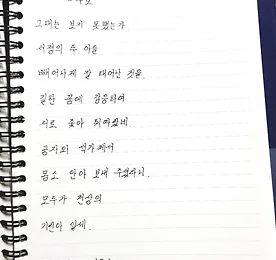 그대는 보지 못했는가
서경의 두 아들
빼어나게 잘 태어난 것을.
길한 꿈에 감응하여
서로 좇아 뒤이었네.
공자와 석가께서
몸소 안아 보내 주셨다니.
모두가 천상의
기린아 일세.